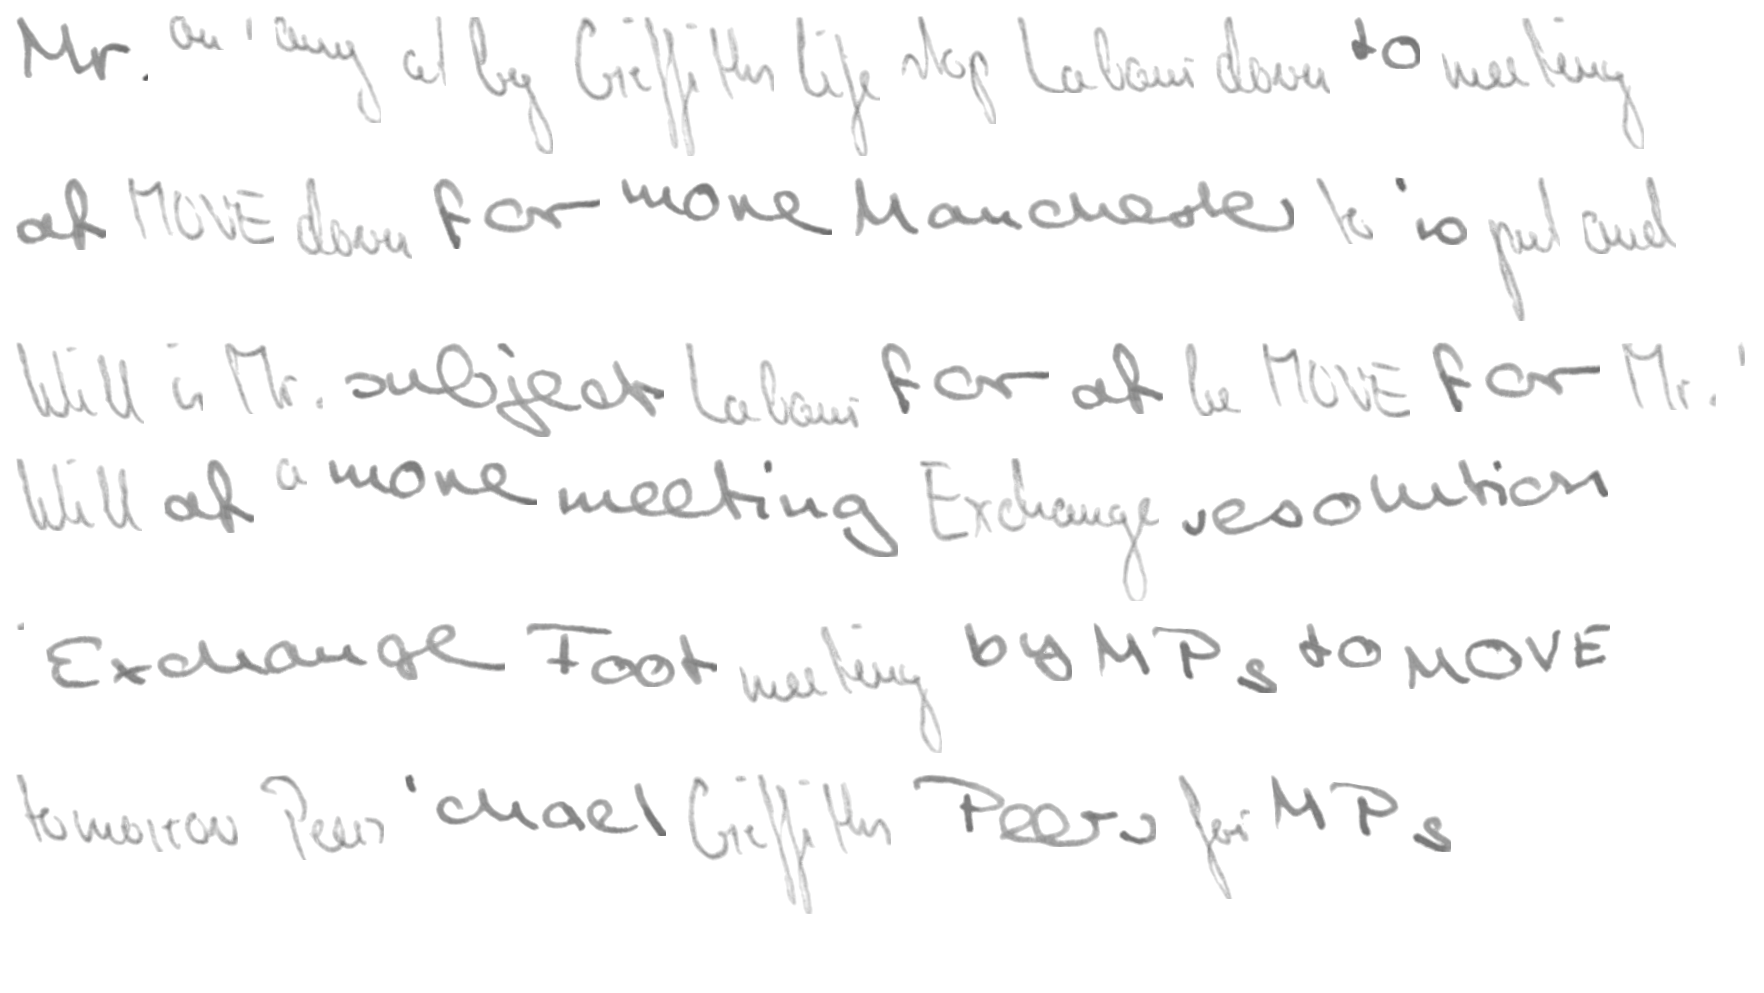 Mr. on ' any at by Griffiths Life stop Labour down to meeting
at MOVE down for more Manchester to to put and
Will is Mr. subject Labour for at be MOVE for Mr. '
Will at a more meeting Exchange resolution
Exchange Foot meeting by MPs to MOVE
tomorrow Peers ' chael Griffiths Peers for MPs